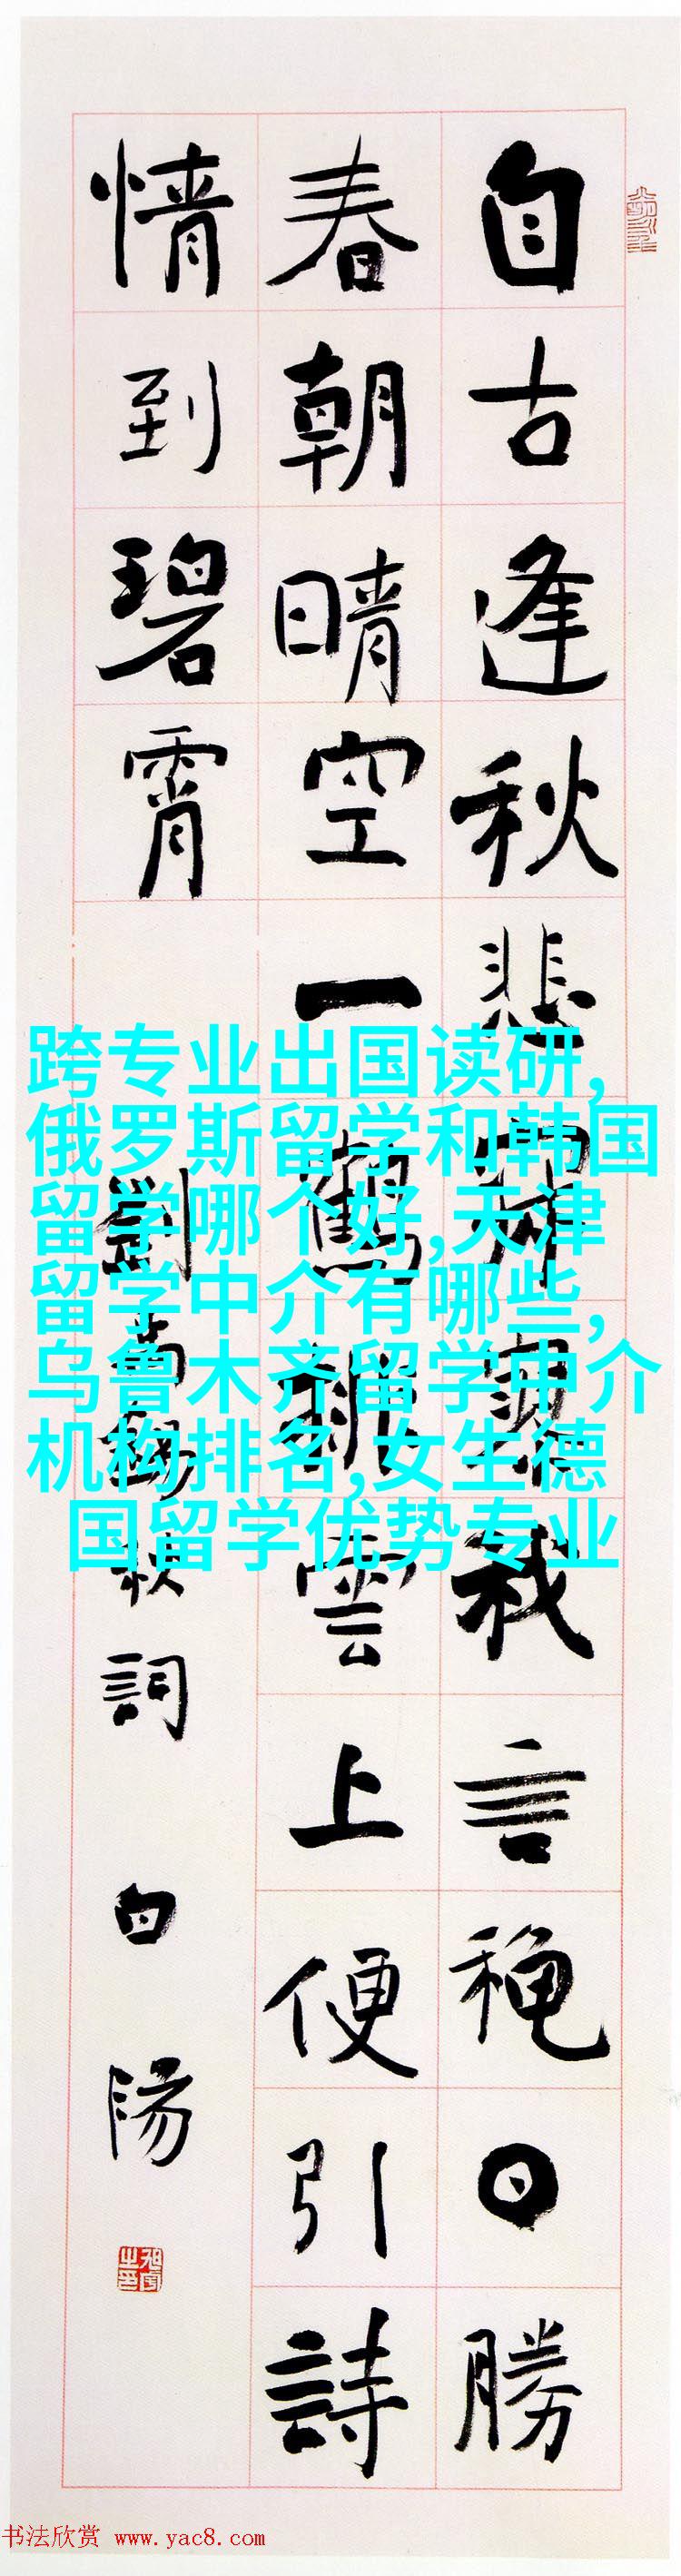 自古逢秋悲寂寥我言穐日勝
春朝晴空一鶴排雲上便引詩
情到碧霄
劉禹錫秋詞
白陽
跨专业出国读研,
俄罗斯留学和韩国
留学哪个好,天津
留学中介有哪些,
乌鲁木齐留学中介
机构排名,女生德
国留学优势专业
书法欣赏 www.yac8.com